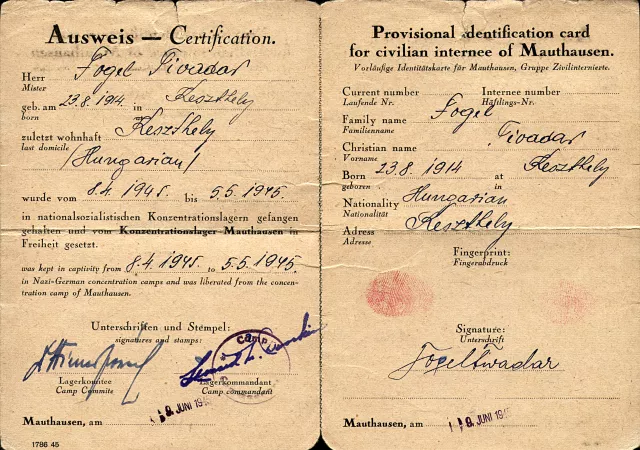 Ausweis — Certification.
Herr Fogel Tivadar
Mister
geb. am 23.8.1914. in Keszthely
born
zuletzt wohnhaft Keszthely
last domicile
/Hungarian/
wurde vom 8.4.1945. bis 5.5.1945.
in nationalsozialistischen Konzentrationslagern gefangen
gehalten und vom Konzentrationslager Mauthausen in
Freiheit gesetzt.
was kept in captivity from 8.4.1945. to 5.5.1945.
in Nazi-German concentration camps and was liberated from the concen-
tration camp of Mauthausen.
Unterschriften und Stempel:
signatures and stamps:
Camp
Lagerkomitee
Camp Commite
Lagerkommandant
Camp commandant
Mauthausen, am JUNI
1786 45
Provisional identification card
for civilian internee of Mauthausen.
Vorläufige Identitätskarte für Mauthausen, Gruppe Zivilinternierte.
Current number Internee number
Laufende Nr. Häftlings-Nr.
Family name Fogel
Familienname
Christian name Tivadar
Vorname
Born 23.8.1914 at Keszthely
geboren in
Nationality Hungarian
Nationalität
Adress Keszthely
Adresse
Fingerprint:
Fingerabdruck
Signature:
Unterschrift
Fogel Tivadar
Mauthausen, am JUNI